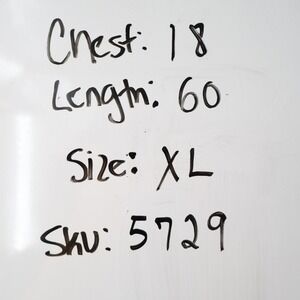 Chest: 18
Length: 60
Size: XL
SKU: 5729